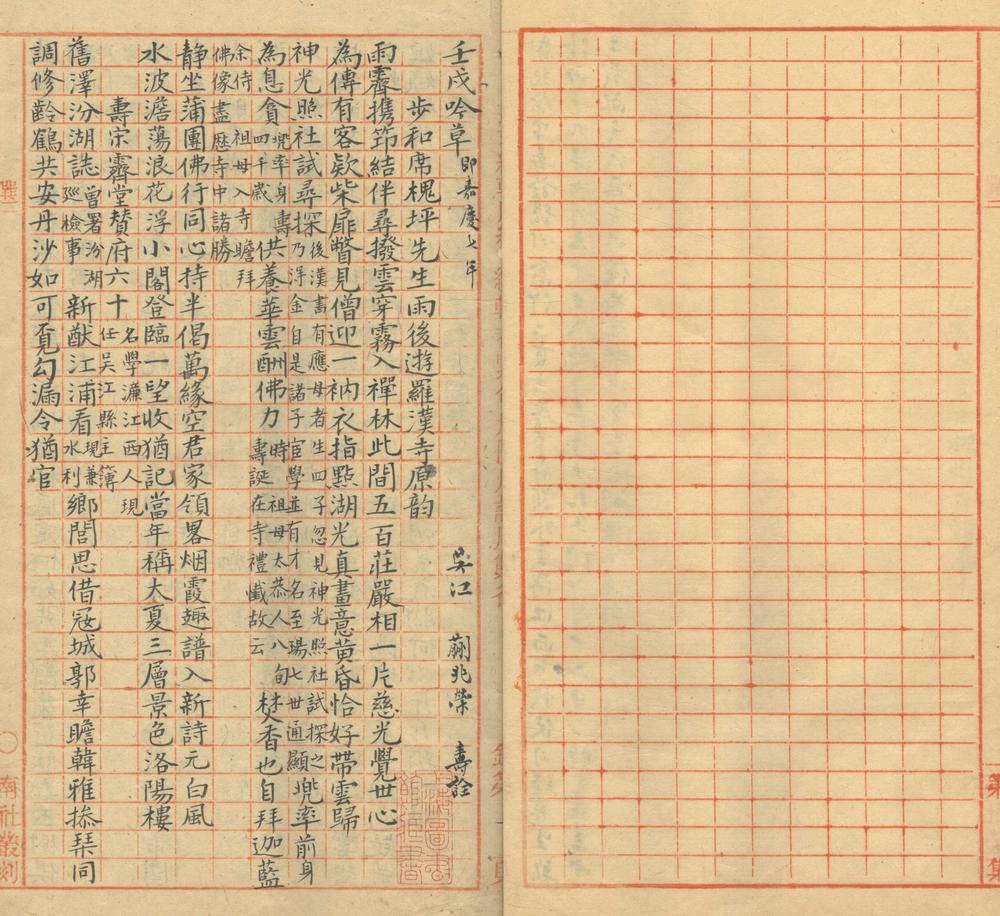 壬戌吟草 即嘉慶七年 吳江 蒯兆榮 壽詮
步和席槐坪先生雨後遊羅漢寺原韵
雨霽携筇結伴尋撥雲穿霧入禪林此間五百莊嚴相一片慈光覺世心
為傳有客欵柴扉瞥見僧迎一衲衣指點湖光真畫意黄昏恰好帶雲歸
神光照社試尋探 後漢書有應母者生四子忽見神光照社試探之
乃浮金自是諸子宦學並有才名至瑒七世通顯 兠率前身
為息貪 兠率身壽
四千歲 供養華雲酬佛力 時祖母太恭人八旬
壽誕在寺禮懺故云 焚香也自拜迦藍
余侍祖母入寺瞻拜
佛像盡歷寺中諸勝
静坐蒲團佛行同心持半偈萬緣空君家領畧烟霞趣譜入新詩元白風
水波澹蕩浪花浮小閣登臨一望收猶記當年稱大夏三層景色洛陽樓
壽宗霽堂贊府六十 名學濂江西人現
任吳江縣主簿
舊澤汾湖誌 曾署汾湖
廵檢事 新猷江浦看 現兼
水利 鄉閭思借寇城郭幸瞻韓雅操琹同
調修齡鶴共安丹沙如可覔勾漏令猶官
南社叢刻